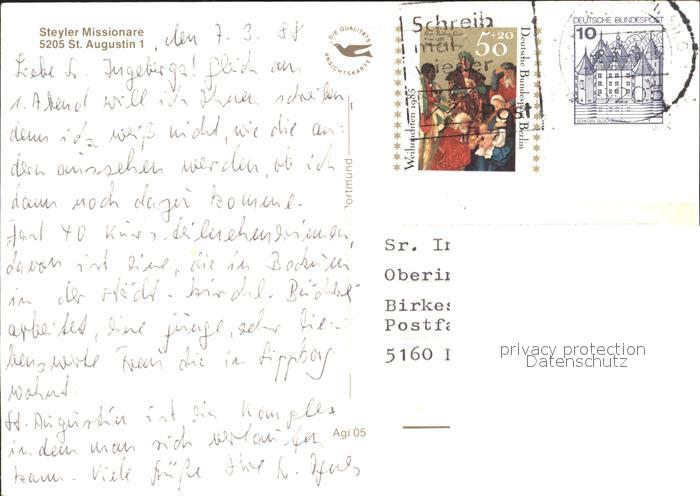 Steyler Missionare
5205 St. Augustin 1
, den 7. 3. 88
Liebe Sr. Ingeberga! Gleich am
1. Abend will ich Ihnen schreiben,
denn ich weiß nicht, wie die an-
dern aussehen werden, ob ich
dann noch dazu komme.
Fast 40 Kursteilnehmerinnen,
davon ist eine, die in Bochum
in der städt. Bücherei
arbeitet, eine junge, sehr lie-
benswerte Frau die in Lippborg
wohnt.
St. Augustin ist ein Komplex
in dem man sich verlaufen
kann. Viele Grüße Ihre Sr.
DIE QUALITÄTS
ANSICHTSKARTE
ortmund
Agi 05
Schreib
mal
wieder
Post
50+20
Deutsche Bundespost Berlin
Weihnachten 1985
DEUTSCHE BUNDESPOST
10
SCHLOSS GLÜCKSBURG
Sr. In
Oberin
Birkes
Postfa
5160
privacy protection
Datenschutz